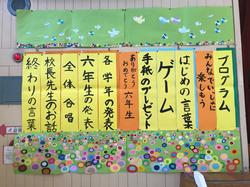 プログラム
みんなでいっしょに
楽しもう
はじめの言葉
ゲーム
手紙のプレゼント
ありがとう
おめでとう 六年生
各学年の発表
六年生の発表
全体合唱
校長先生のお話
終わりの言葉